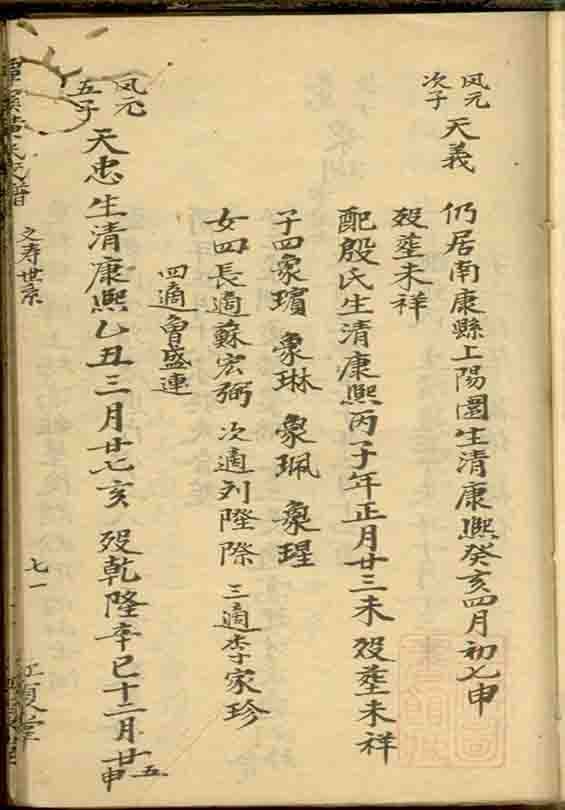 凤元
次子
天義
仍居南康縣上陽圍生清康熙癸亥四月初七申
殁塟未祥
配殷氏生清康熙丙子年正月廿三未 殁塟未祥
子四象璸 象琳 象珮 象瑆
女四長適蘇宏弼 次適列陞際 三適李家珍
四適魯盛連
凤元
五子
天忠生清康熙乙丑三月廿七亥 殁乾隆辛巳十二月廿五申
氏族譜
之寿世系
七一